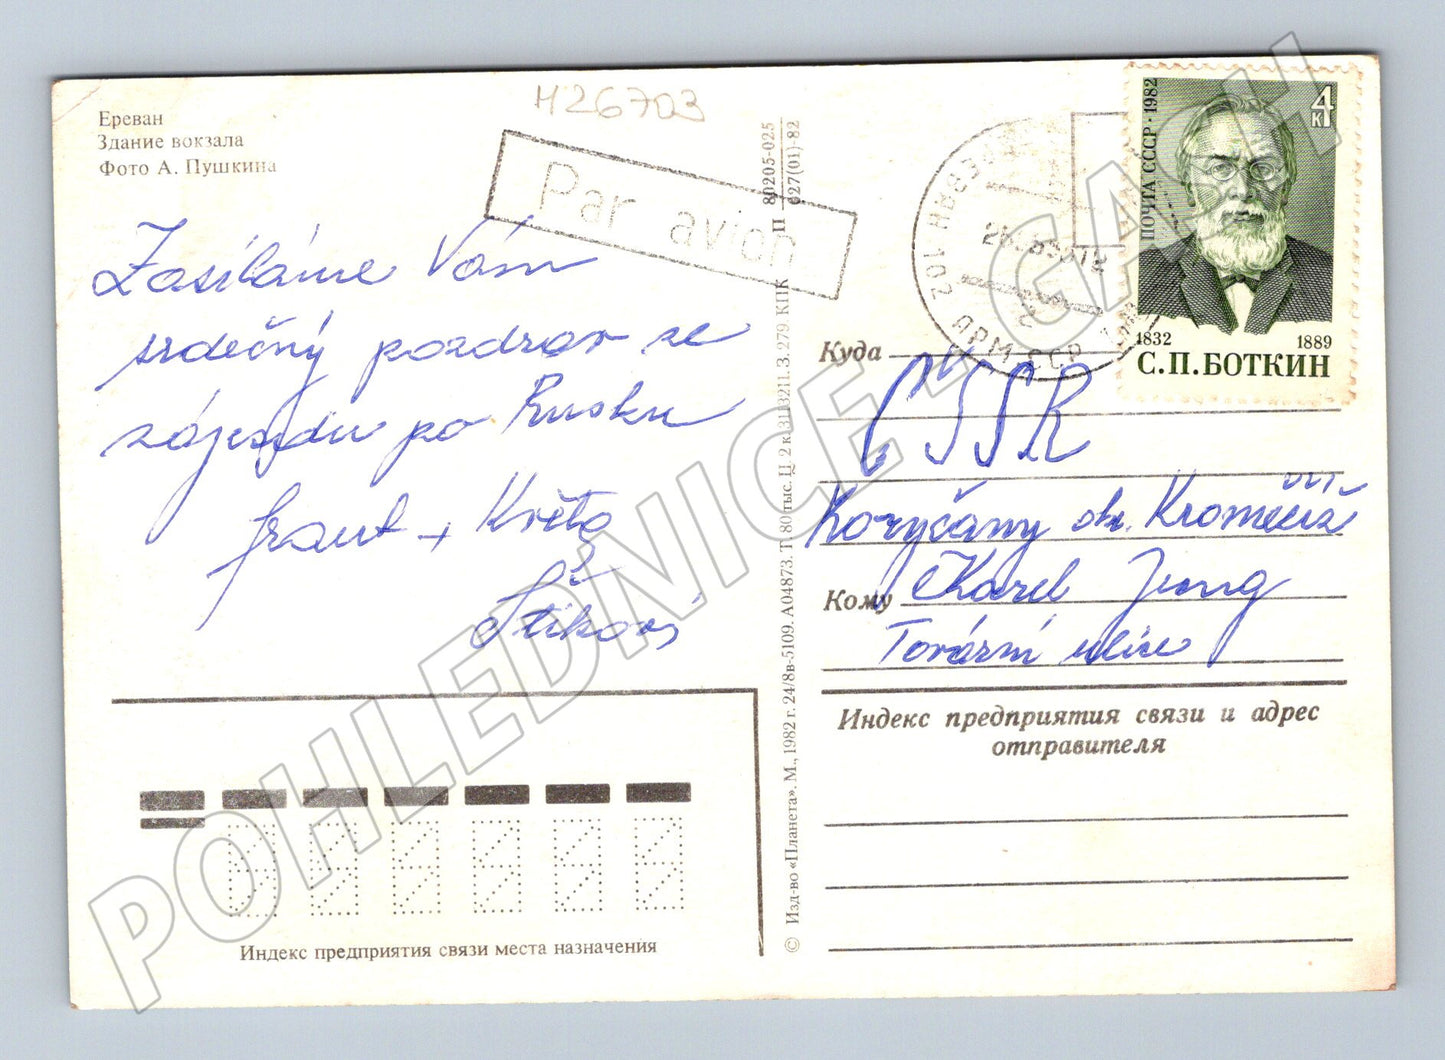 Ереван
Здание вокзала
Фото А. Пушкина
M26703
Par avion
Zasíláme Vám
srdečný pozdrav ze
zájezdu po Rusku
Frant + Květa
Štikovi
П 80205-025
027(01)-82
© Изд-во «Планета». М., 1982 г. 24/8в-5109. А04873. Т. 80 тыс. Ц. 2 к. 3113211. З. 279 КПК
ПОЧТА СССР · 1982
4
к
1832 1889
С.П.БОТКИН
ЕРЕВАН 102
АРМ ССР
Куда
ČSSR
Koryčany okr. Kroměříž
Кому Karel Jung
Tovární ulice
Индекс предприятия связи и адрес
отправителя
Индекс предприятия связи места назначения
POHLEDNICE - GASH